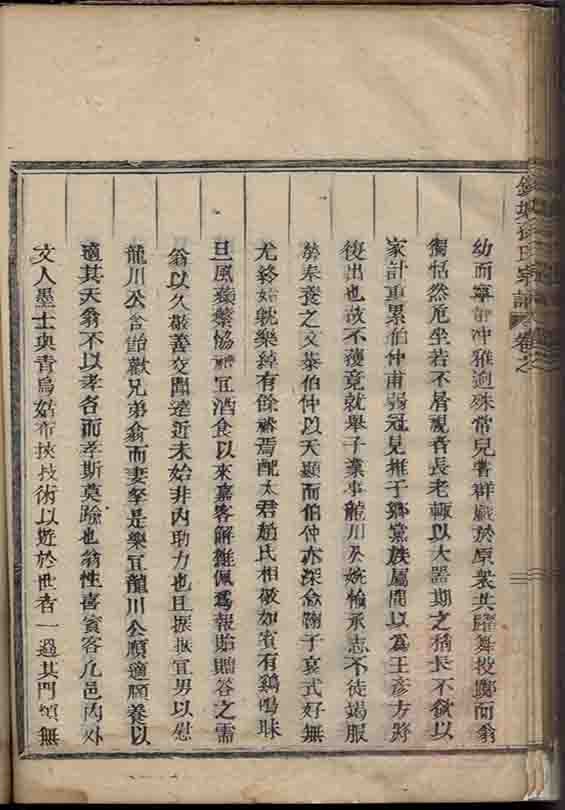 幼而寧靜冲雅迥殊常兒嘗群戲於原衆共躍舞投擲而翁
獨恬然危坐若不屑視者長老輒以大器期之稍長不欲以
家計重累伯仲甫弱冠見推于鄉黨族屬間以爲王彥方將
復出也故不獲竟就舉子業事龍川公婉愉承志不徒竭服
勞奉養之文恭伯仲以天顯而伯仲亦深念鞠子哀式好無
尤終始耽樂綽有餘裕焉配太君趙氏相敬如賓有鷄鳴昧
旦風蘋蘩協祀宜酒食以來嘉客解雜佩爲報貽贈答之需
翁以久敬善交聞遠近未始非内助力也且振振宜男以慰
龍川公含飴歡兄弟翕而妻孥是樂宜龍川公順適頤養以
適其天翁不以孝名而孝斯莫踰也翁性喜賓客凡邑内外
文人墨士與青烏姑布挾技術以遊於世者一過其門頌無
氏宗譜 卷之